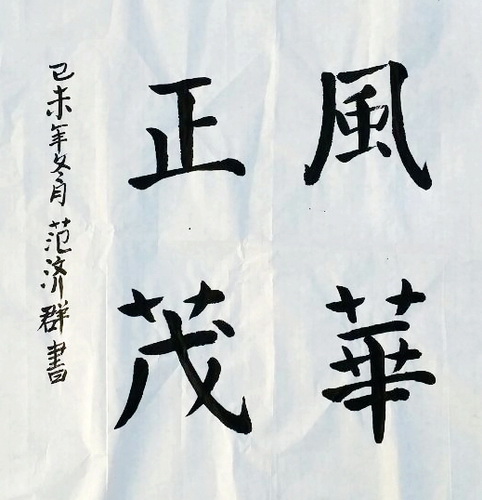 風華
正茂
己未年冬月范济群書